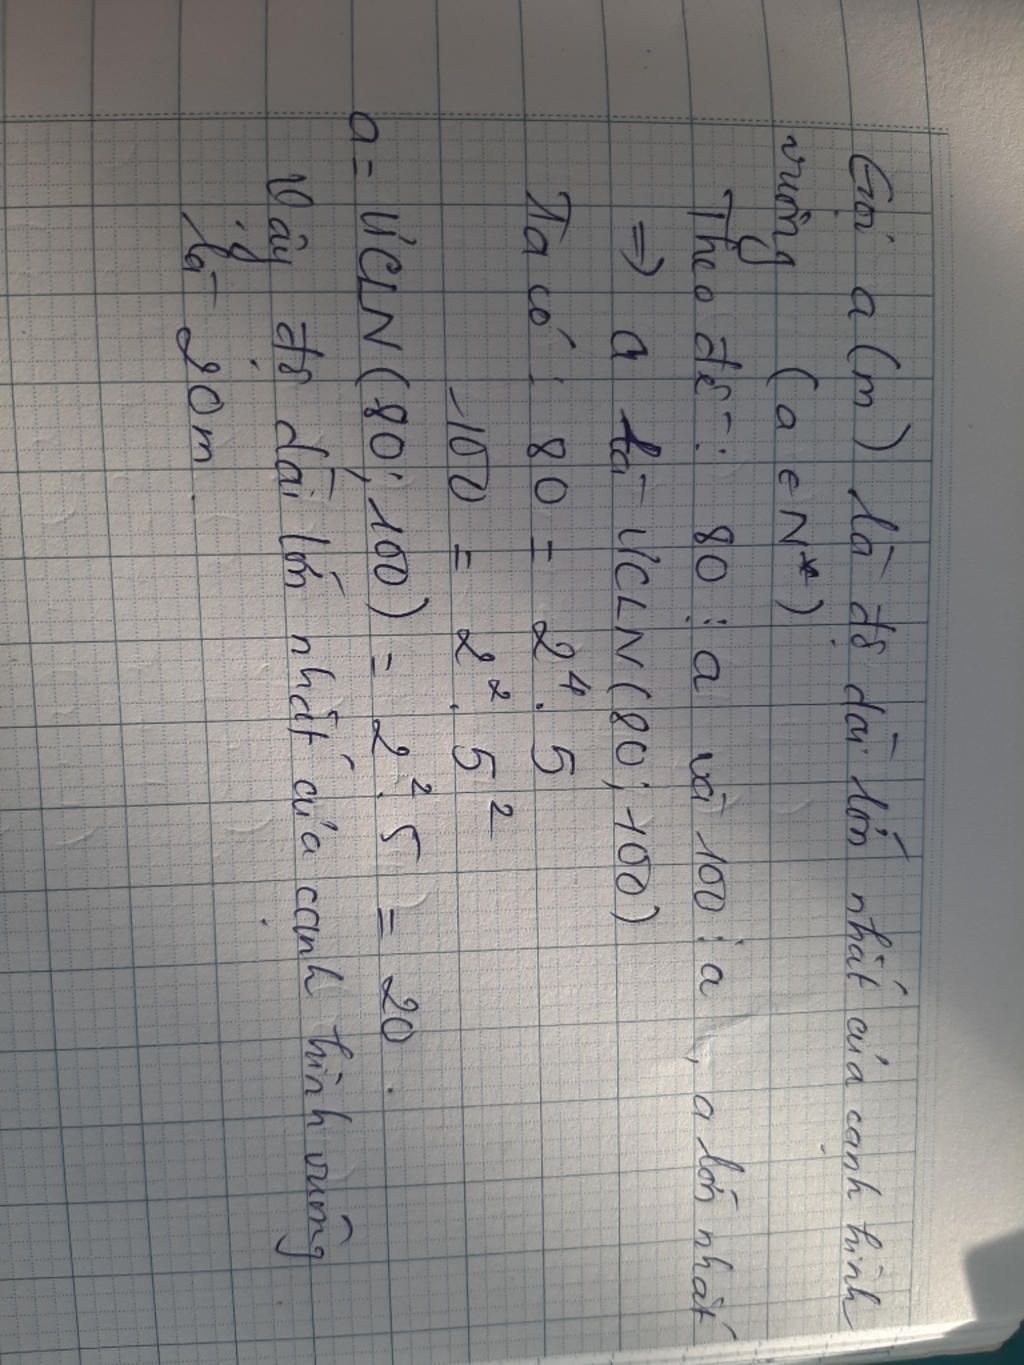 Gọi a (m) là độ dài lớn nhất của cạnh hình
vuông (a ∈ N*)
Theo đề: 80 ⋮ a và 100 ⋮ a, a lớn nhất
=> a là ƯCLN (80; 100)
Ta có: 80 = 2⁴. 5
100 = 2². 5²
a = ƯCLN (80; 100) = 2². 5 = 20.
Vậy độ dài lớn nhất của cạnh hình vuông
là 20m.